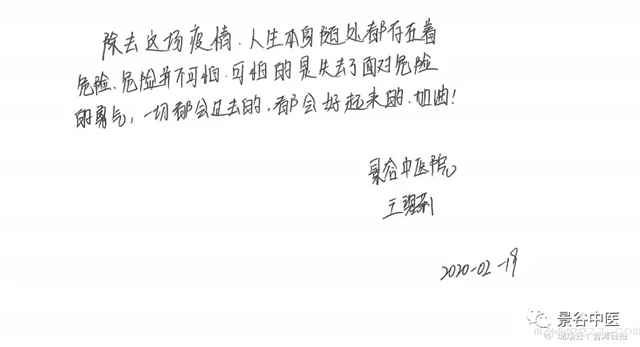 除去这场疫情.人生本身随处都存在着
危险.危险并不可怕.可怕的是失去了面对危险
的勇气,一切都会过去的,都会好起来的.加油!
景谷中医院
2020-02-19
景谷中医